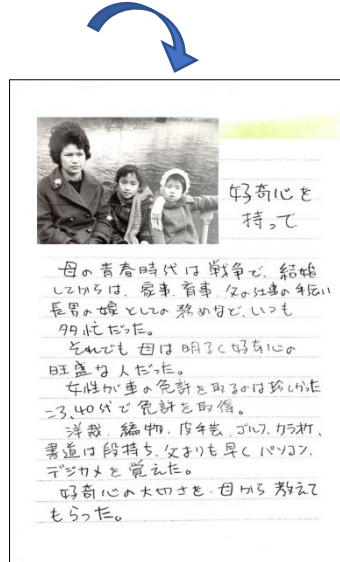 好奇心を
持って
母の青春時代は戦争で、結婚
してからは、家事、育事、父の仕事の手伝い
長男の嫁としての務めなど、いつも
多忙だった。
それでも母は明るく好奇心の
旺盛な人だった。
女性が車の免許を取るのは珍しかった
ころ、40代で免許を取得。
洋裁、編物、皮手芸、ゴルフ、カラオケ、
書道は段持ち、父よりも早くパソコン、
デジカメを覚えた。
好奇心の大切さを、母から教えて
もらった。